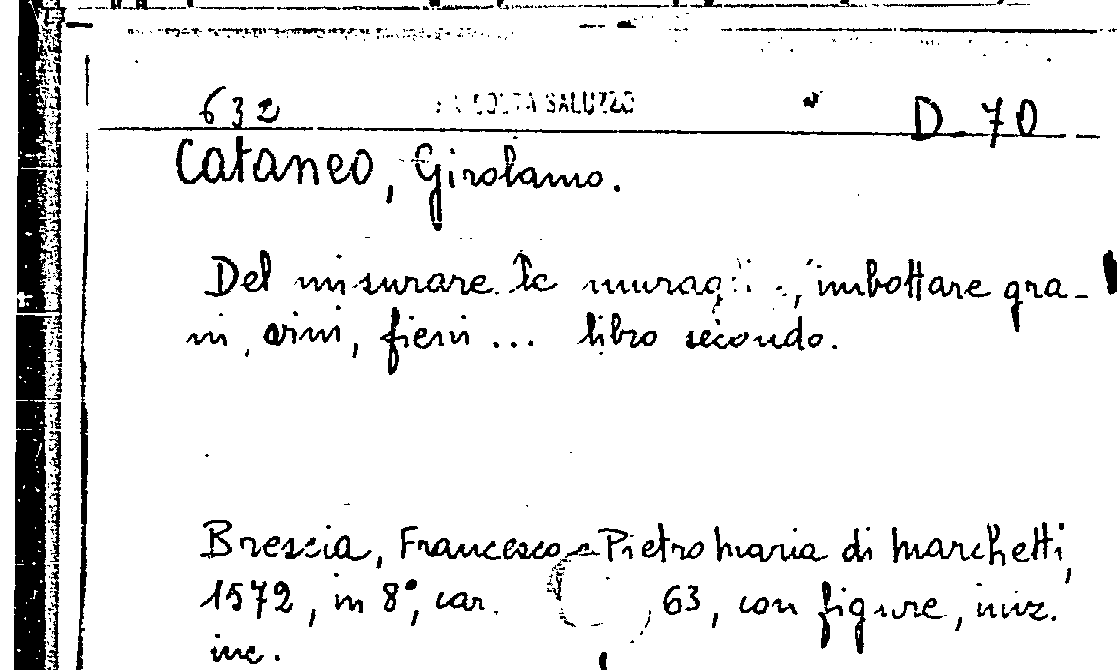 632 RACCOLTA SALUZZO D. 70
Cataneo, Girolamo.
Del misurare le muraglie, imbottare gra-
ni, vini, fieni ... libro secondo.
Brescia, Francesco e Pietro Maria di Marchetti,
1572, in 8°, car. 63, con figure, iniz.
inc.